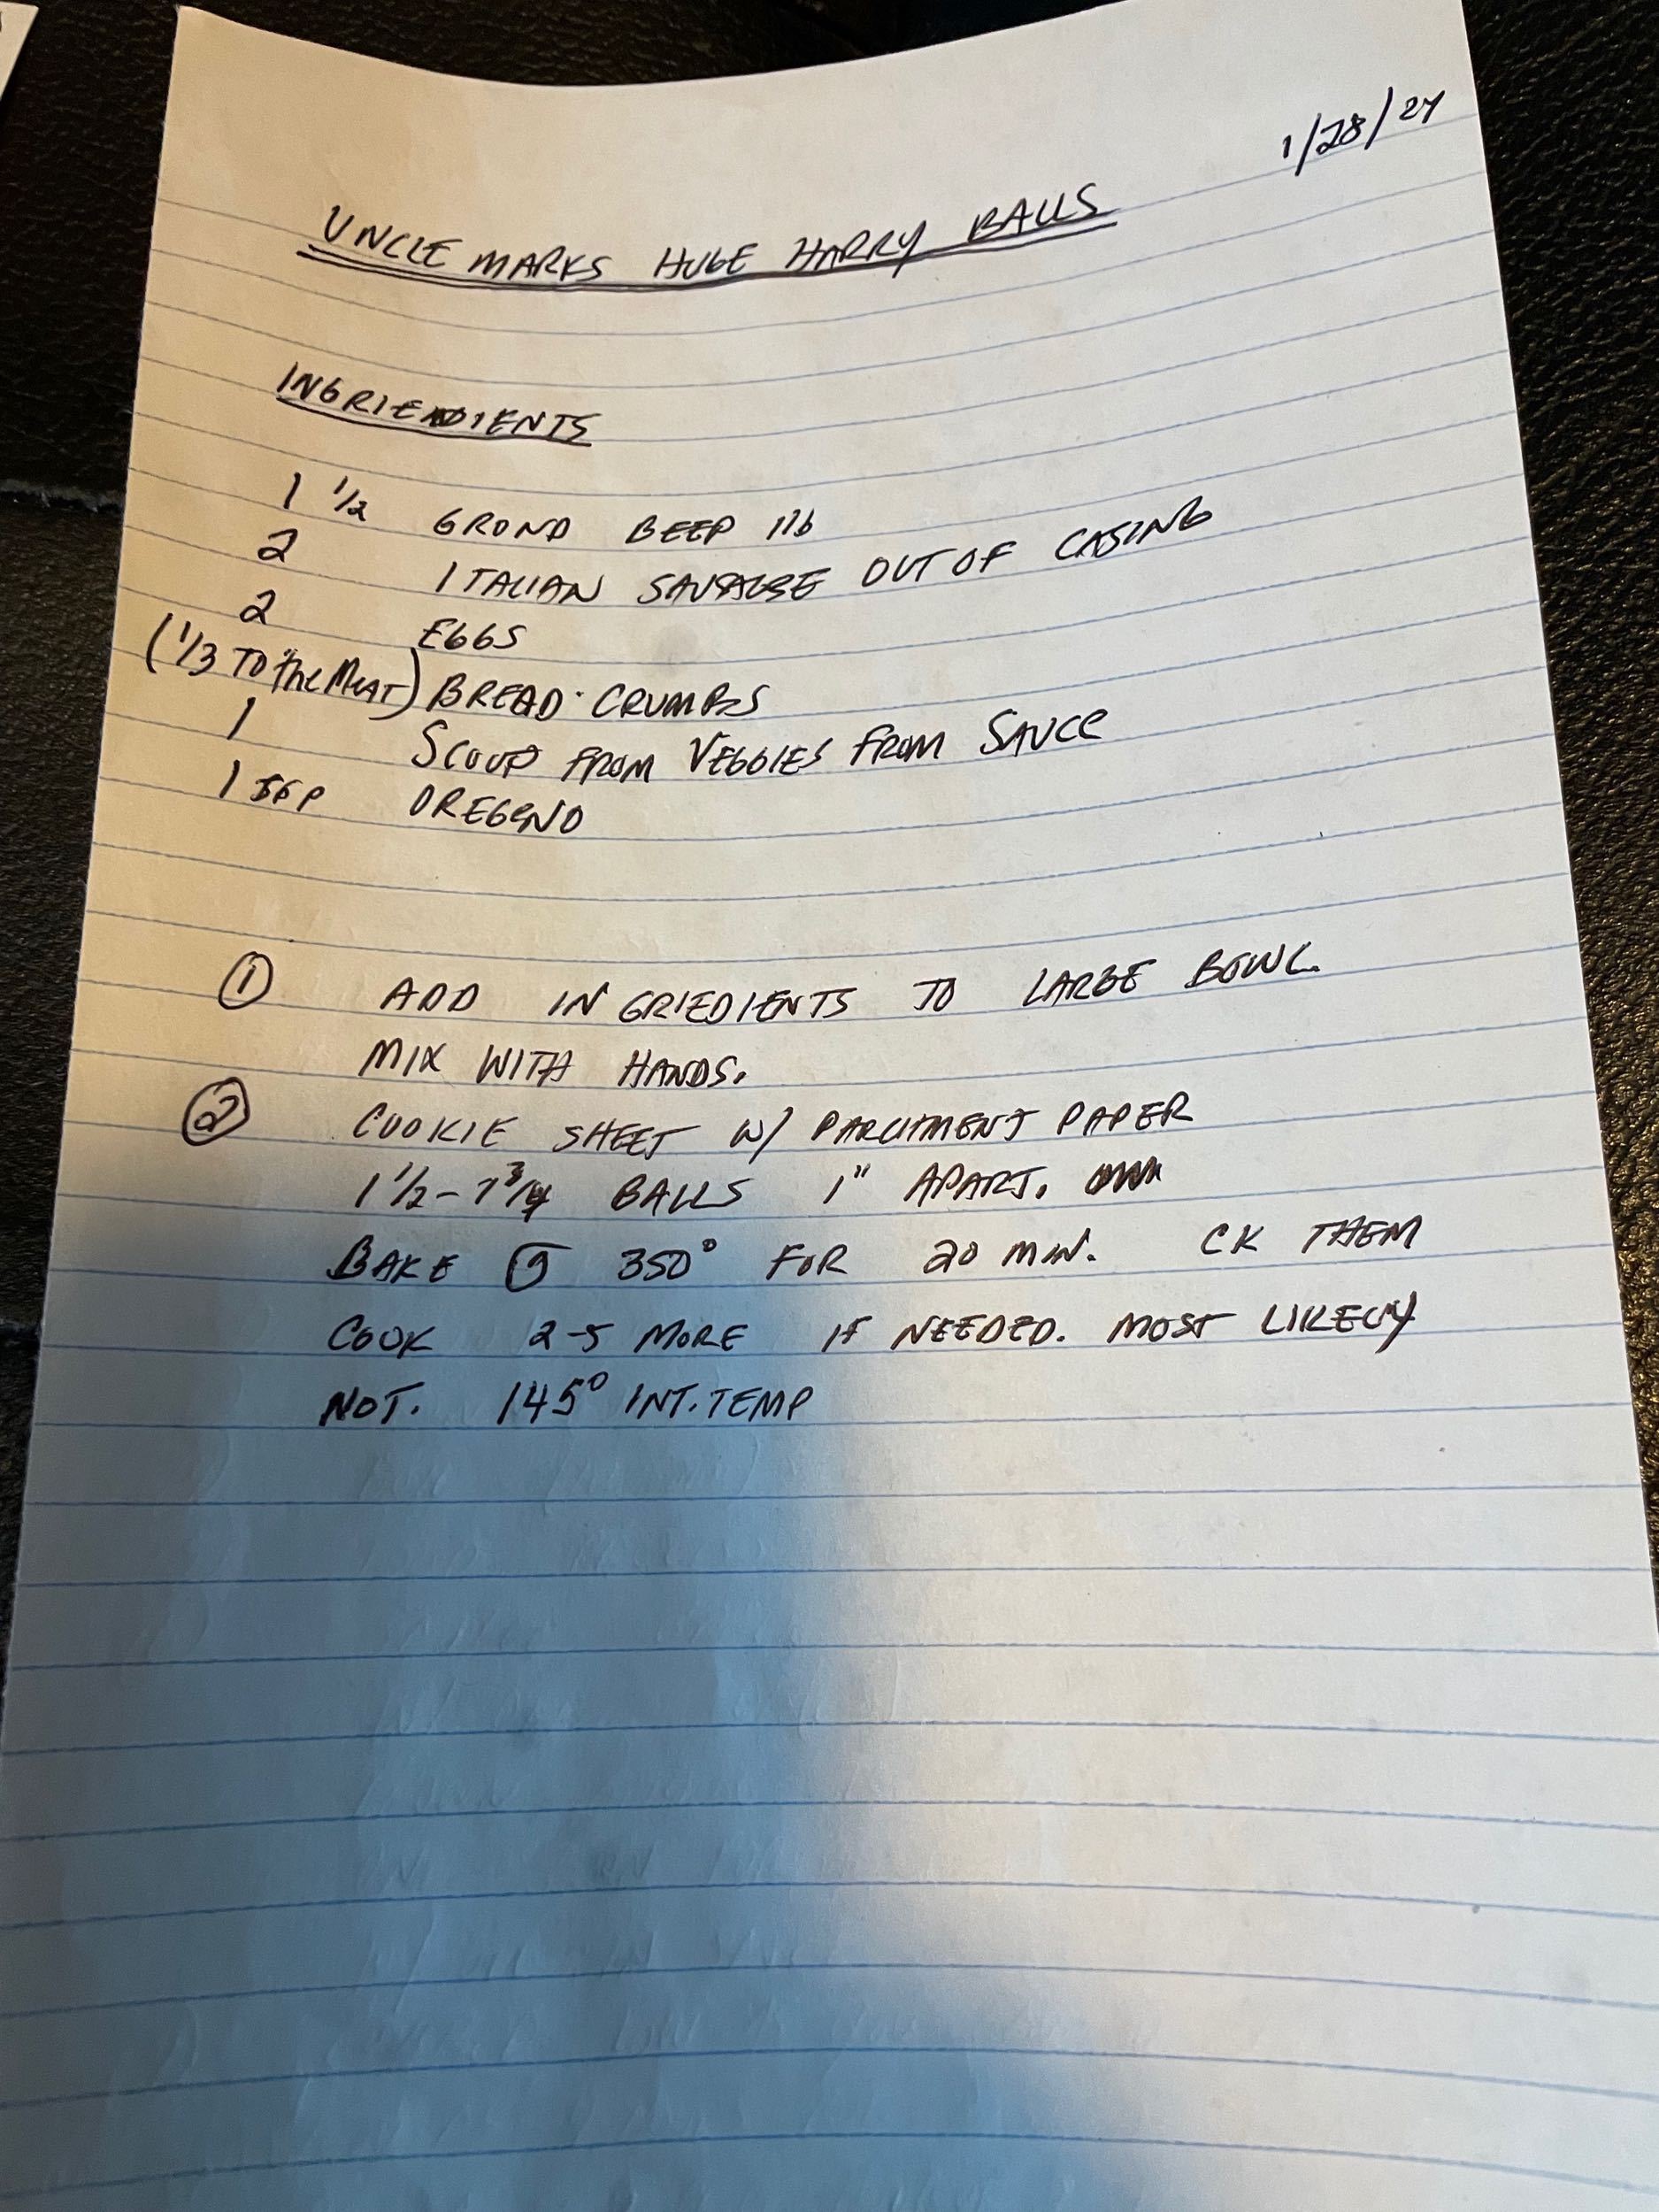 1/28/24
UNCLE MARKS HUGE HARRY BALLS
INGRIENDIENTS
1 1/2 GROND BEEF 1lb
2 ITALIAN SAUSAGE OUT OF CASING
2 EGGS
(1/3 TO the MEAT) BREAD CRUMBS
1 SCOUP FROM VEGGIES FROM SAUCE
1 OREGENO
① ADD INGRIEDIENTS TO LARGE BOWL.
MIX WITH HANDS.
② COOKIE SHEET W/ PARCHMENT PAPER
1 1/2 - 1 3/4 BALLS 1" APART.
BAKE @ 350° FOR 20 MIN. CK THEM
COOK 2-5 MORE IF NEEDED. MOST LIKELY
NOT. 145° INT. TEMP